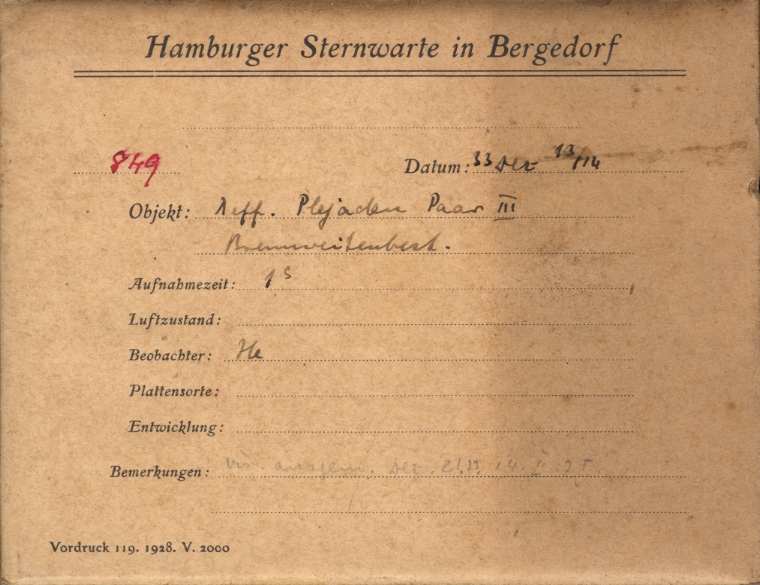 Hamburger Sternwarte in Bergedorf
849
Datum: 33 Dez 13/14
Objekt: Plejaden Paar III
Brennweitenbest.
Aufnahmezeit: 1 s
Luftzustand:
Beobachter: He
Plattensorte:
Entwicklung:
Bemerkungen: Dez.
Vordruck 119. 1928. V. 2000